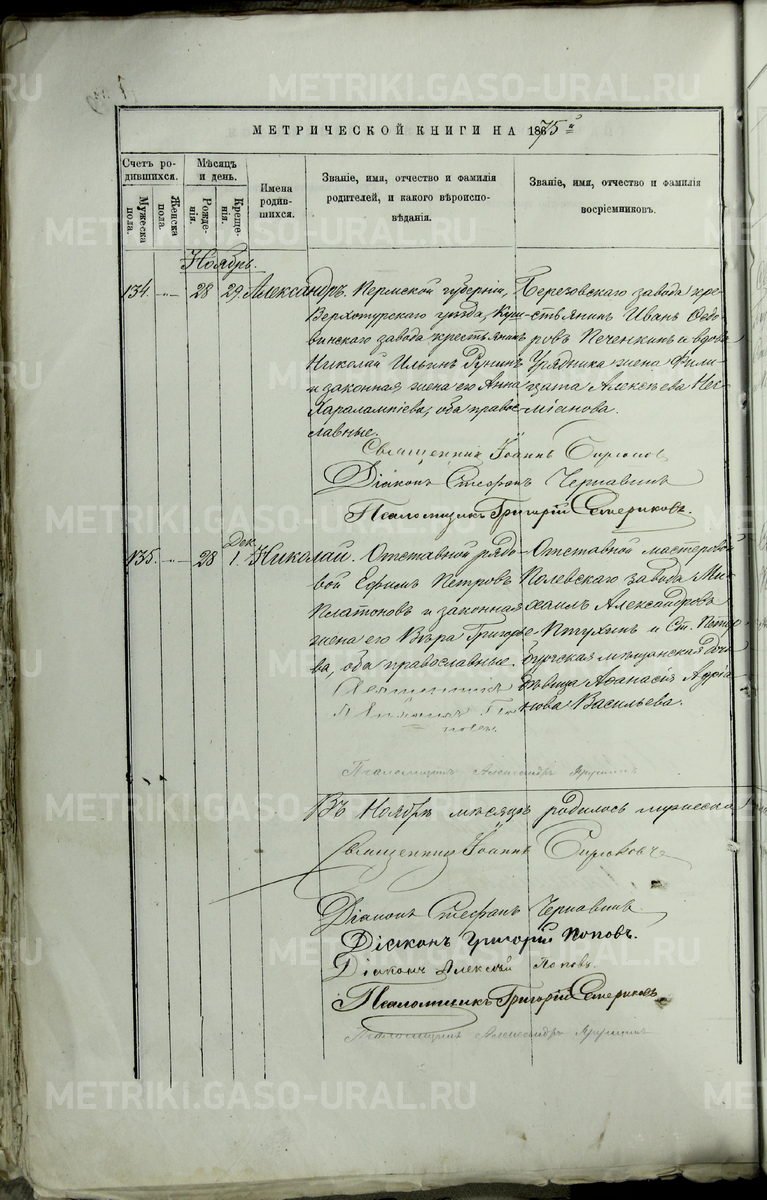 METRIKI.GASO-URAL.RU
МЕТРИЧЕСКОЙ КНИГИ НА 1875й
Счетъ ро-
дившихся.
Мужеска
пола.
Женска
пола.
Мѣсяцъ
и день.
Рожде-
нія.
Креще-
нія.
Имена
родив-
шихся.
Званіе, имя, отчество и фамилія
родителей, и какого вѣроиспо-
вѣданія.
Званіе, имя, отчество и фамилія
воспріемниковъ.
Ноябрь.
134. 28 29. Александръ.
Пермской губерніи,
Верхотурскаго уѣзда, Куш-
винскаго завода крестьянинъ
Николай Ильинъ
и законная жена его Анна
Харалампіева, оба правос-
лавные.
Березовскаго завода кре-
стьянинъ Иванъ Ѳедо-
ровъ Печенкинъ и вдова
Урядника жена Фили-
цата Алексѣева
Священникъ Іоаннъ
Діаконъ Стефанъ Чернавинъ
Псаломщикъ Григорій Семериковъ.
135. 28 Дек. 1. Николай.
Отставной рядо-
вой Ефимъ Петровъ
Платоновъ и законная
жена его Вѣра Григорье-
ва, оба православные.
Отставной мастеровой
Полевскаго завода Ми-
хаилъ Александровъ
Птухинъ и Ст. Петер-
бургская мѣщанская дочь
дѣвица Аѳанасія Адріа-
нова Васильева.
Псаломщикъ Александръ
Въ Ноябрѣ мѣсяцѣ родилось мужеска
Священникъ Іоаннъ
Діаконъ Стефанъ Чернавинъ
Діаконъ Григорій Поповъ.
Діаконъ Алексѣй Поповъ
Псаломщикъ Григорій Семериковъ
Псаломщикъ Александръ